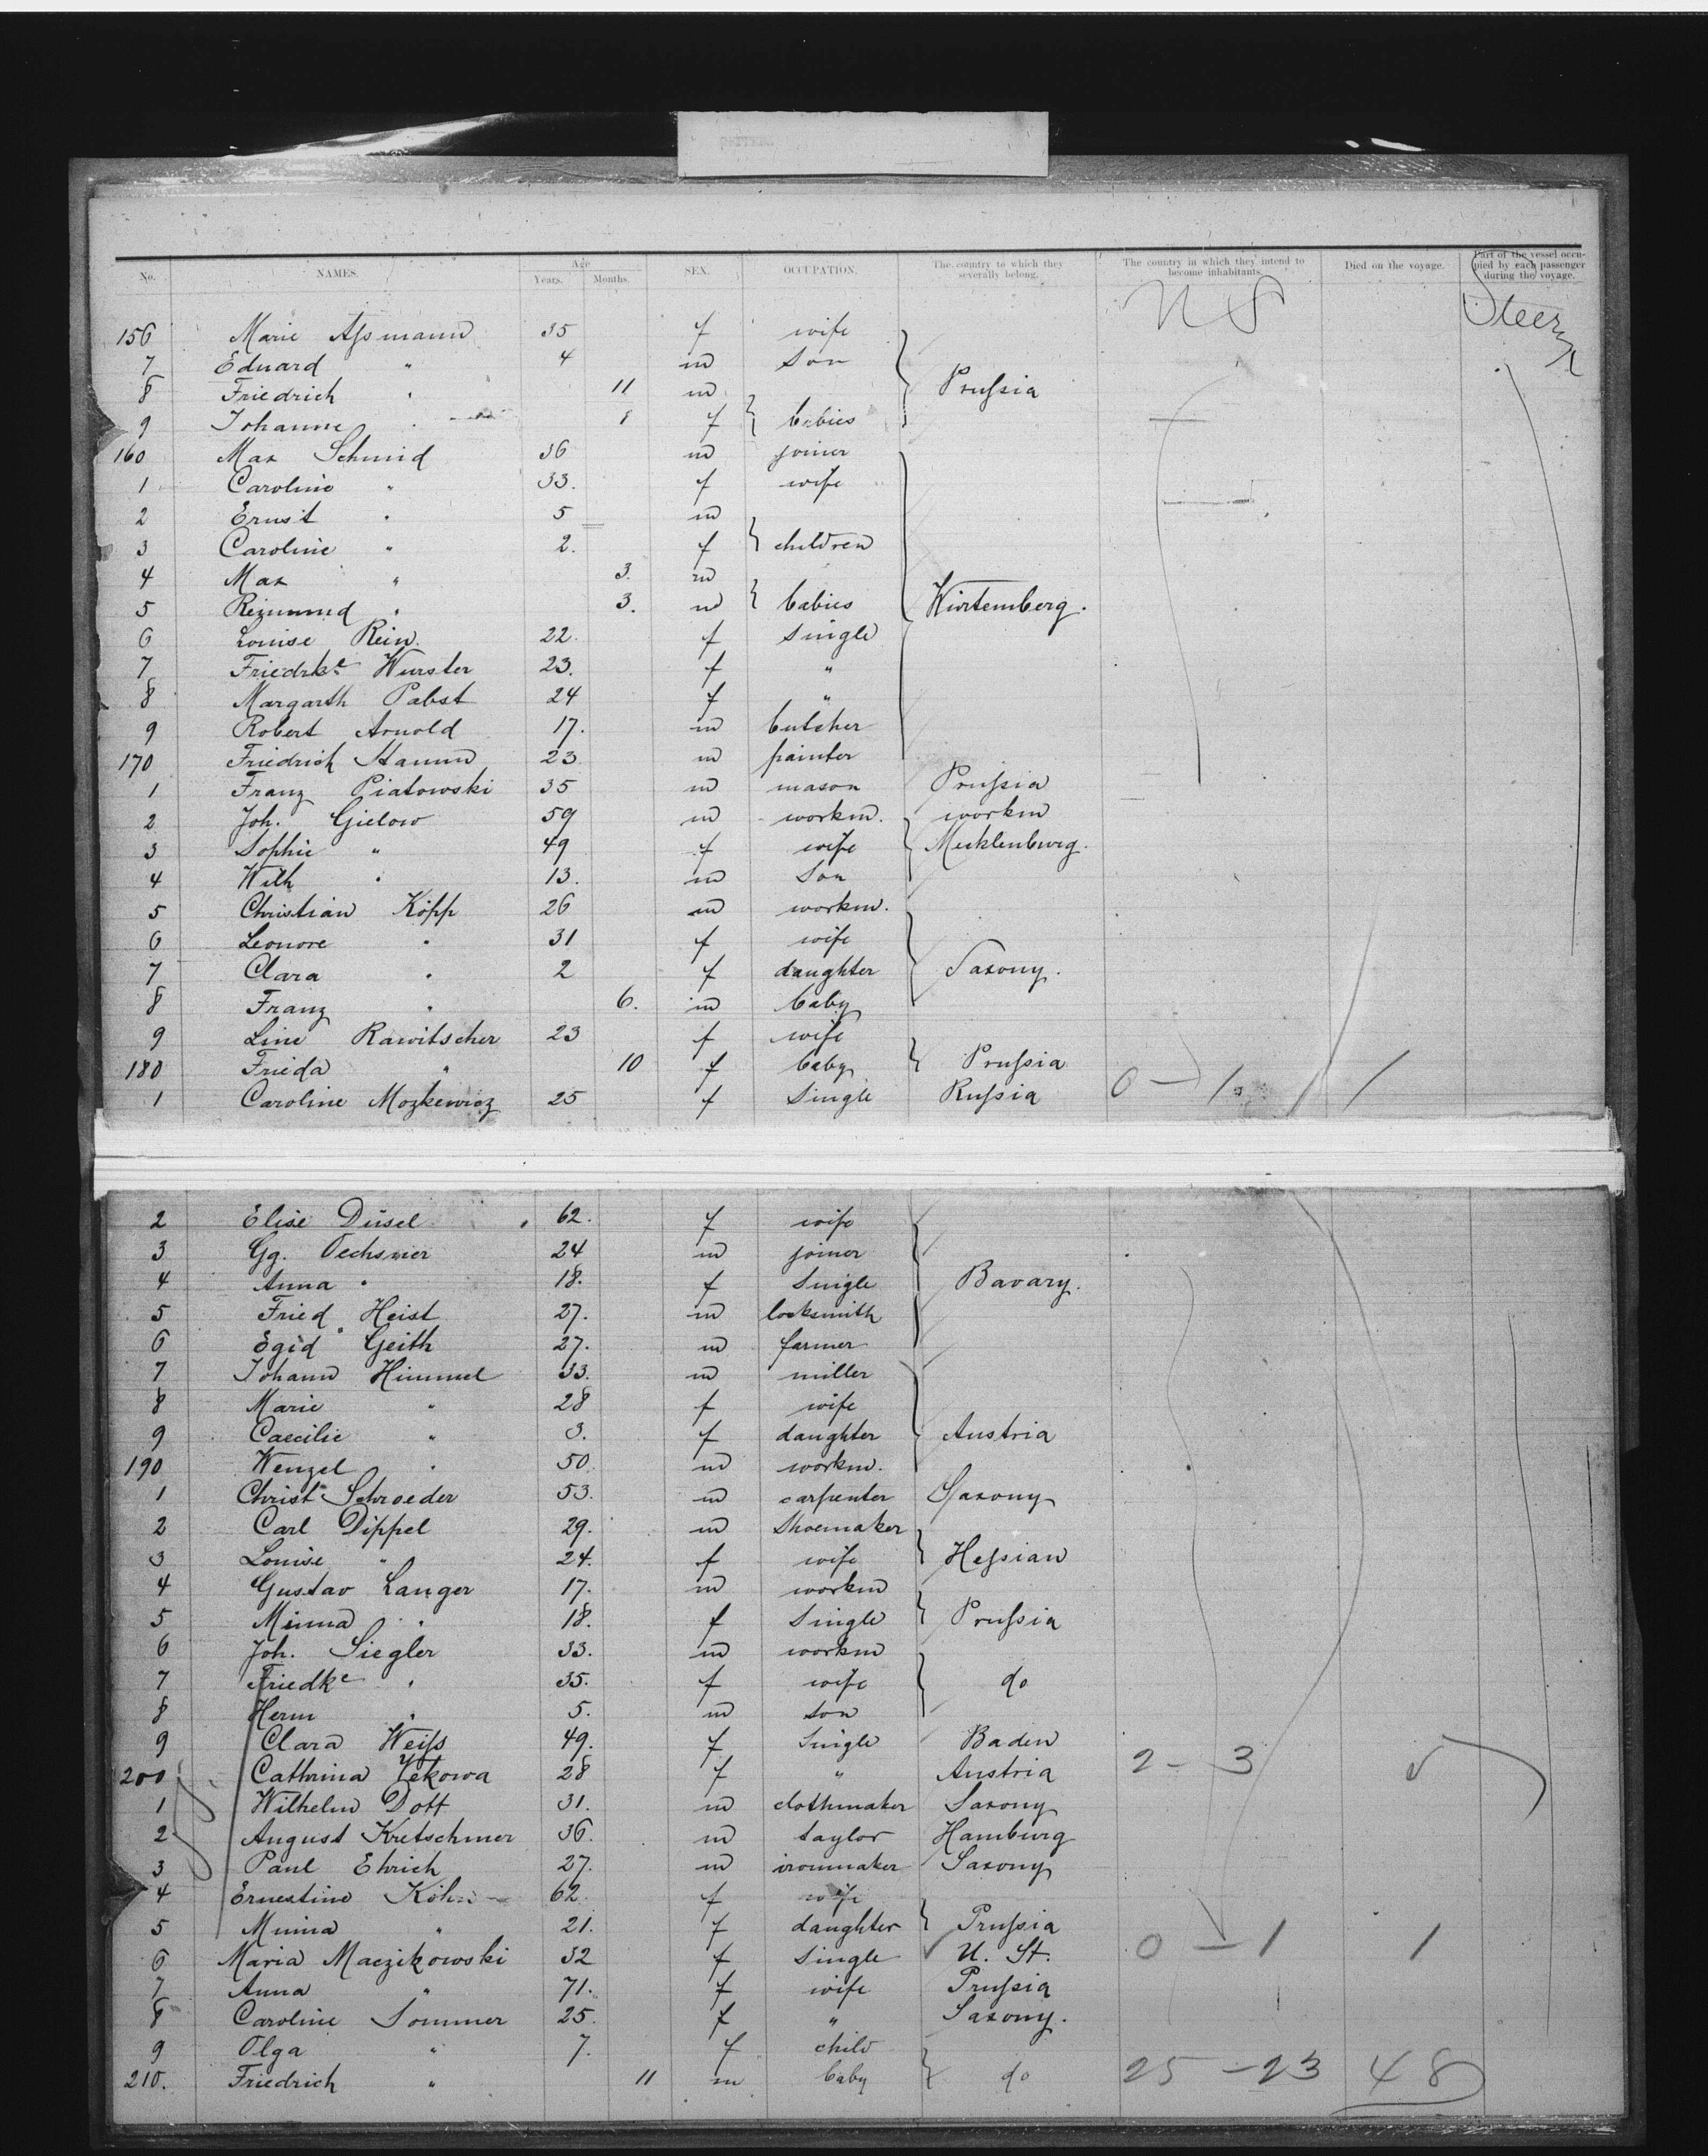 No. NAMES. Age Years. Months. SEX. OCCUPATION. The country to which they severally belong. The country in which they intend to become inhabitants. Died on the voyage. Part of the vessel occupied by each passenger during the voyage.
U S
156 Marie Aſsmann 35 f wife
7 Eduard " 4 m Son
8 Friedrich " 11 m Pruſsia
9 Johanne " f } babies
160 Max Schmid 36 m joiner
1 Caroline " 33. f wife
2 Ernst " 5 m
3 Caroline " 2. f } children
4 Max " 3. m
5 " 3. m } babies Würtemberg.
6 Louise Rein 22. f Single
7 Friedrke Wurster 23. f "
8 Margarth Pabst 24 f "
9 Robert Arnold 17. m butcher
170 Friedrich Hamm 23 m painter
1 Franz Piatowski 35 m mason Pruſsia
2 Joh. Gielow 59 m workm. workm
3 Sophie " 49 f wife Mecklenburg.
4 Wilh " 13. m Son
5 Christian Köpp 26 m workm.
6 Leonore " 31 f wife
7 Clara " 2 f daughter Saxony.
8 Franz " 6. m baby
9 Line Rawitscher 23 f wife
180 Frieda " 10 f baby } Pruſsia
1 Caroline Mozkewicz 25 f Single Ruſsia 0 — 1 1
2 Elise Düsel 62. f wife
3 Gg. Oechsner 24 m joiner
4 Anna " 18. f Single Bavary.
5 Fried Heist 27. m locksmith
6 Egid Geith 27. m farmer
7 Johann Himmel 33. m miller
8 Marie " 28 f wife
9 Caecilie " 3. f daughter Austria
190 Wenzel " 50 m workm.
1 Christ Schroeder 53. m carpenter Saxony
2 Carl Dippel 29. m Shoemaker
3 Louise " 24. f wife } Heſsian
4 Gustav Langer 17. m workm
5 Minna " 18. f Single } Pruſsia
6 Joh. Siegler 33. m workm
7 Friedke " 35. f wife } do
8 Herm " 5. m son
9 Clara Weiſs 49. f Single Baden
200 Cathrina Vekowa 28 f " Austria 2 - 3
1 Wilhelm Dott 31. m clothmaker Saxony
2 August Kretschmer 36. m taylor Hamburg
3 Paul Ehrich 27. m ironmaker Saxony
4 Ernestine Köhn 62 f wife
5 Minna " 21. f daughter } Pruſsia
6 Maria Maczikowski 32 f Single U. St. 0 — 1 1
7 Anna " 71. f wife Pruſsia
8 Caroline Sommer 25. f " Saxony.
9 Olga " 7. f child
210. Friedrich " 11 m baby } do 25 - 23 48